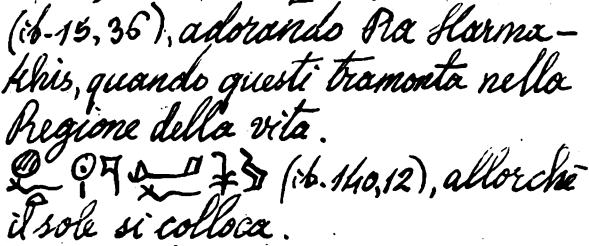 (ib. 15, 36), adorando Ra Harma-
khis, quando questi tramonta nella
Regione della vita.
(ib. 140, 12), allorchè
il sole si colloca.